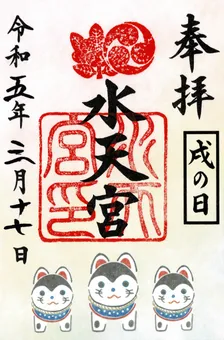 奉拝
戌の日
水天宮
水天宮印
令和五年三月十七日